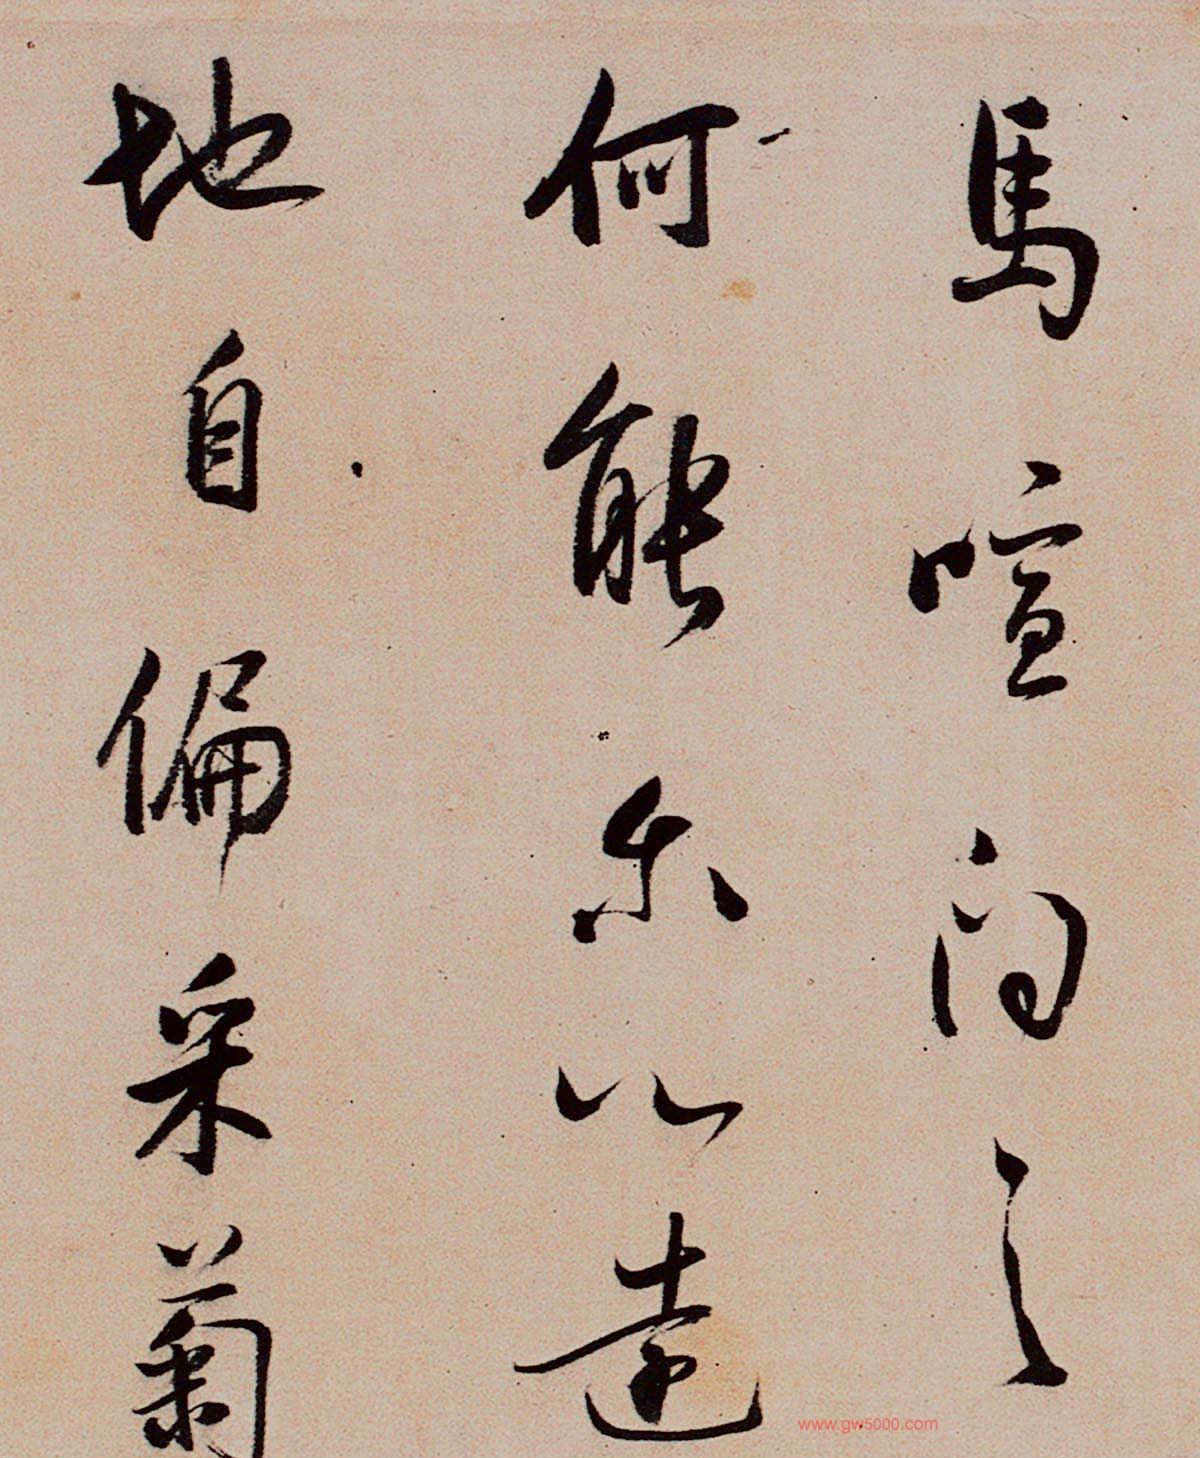 馬喧問君
何能尔心遠
地自偏采菊
www.gw5000.com